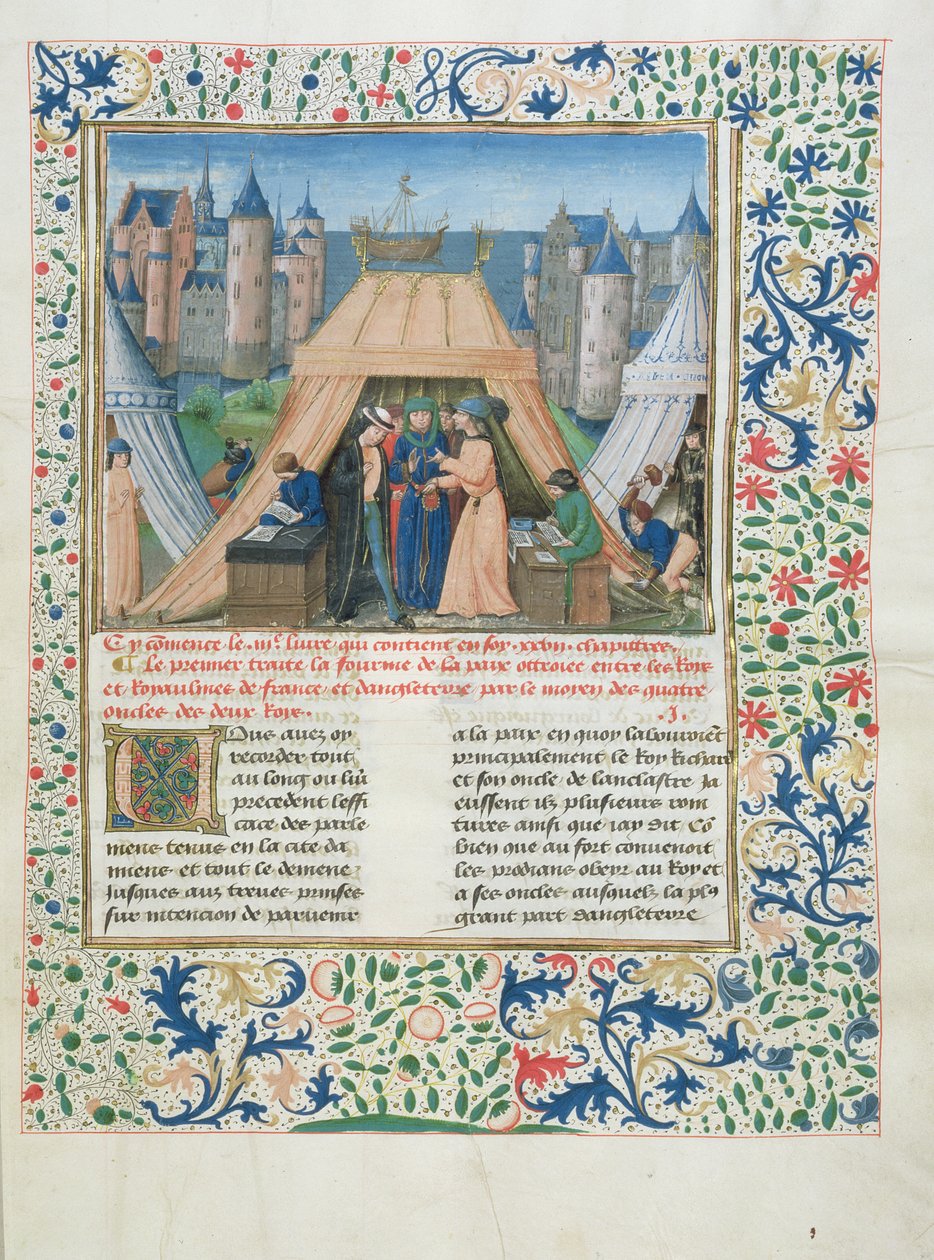 Cy cōmence le .iii.e livre qui contient en soy .xxvii. chapittres.
¶ Le premier traite la fourme de la paix ottroiee entre les Roys
et Royaulmes de france et dangleterre par le moyen des quatre
oncles des deux Roys. .I.
Vous avez oy
recorder tout
au long ou liū
precedent leffi
cace des parle
mens tenus en la cite da
miens et tout le demene
Jusques aux treues prinses
sur intencion de parvenir
a la paix en quoy labouroiēt
principalement le Roy Richard
et son oncle de lanclastre Ja
eussent ilz plusieurs rom
tures ainsi que jay dit Cō
bien que au fort convenoit
les prochains obeyr au Roy et
a ses oncles ausquelz la plꝰ
grant part dangleterre